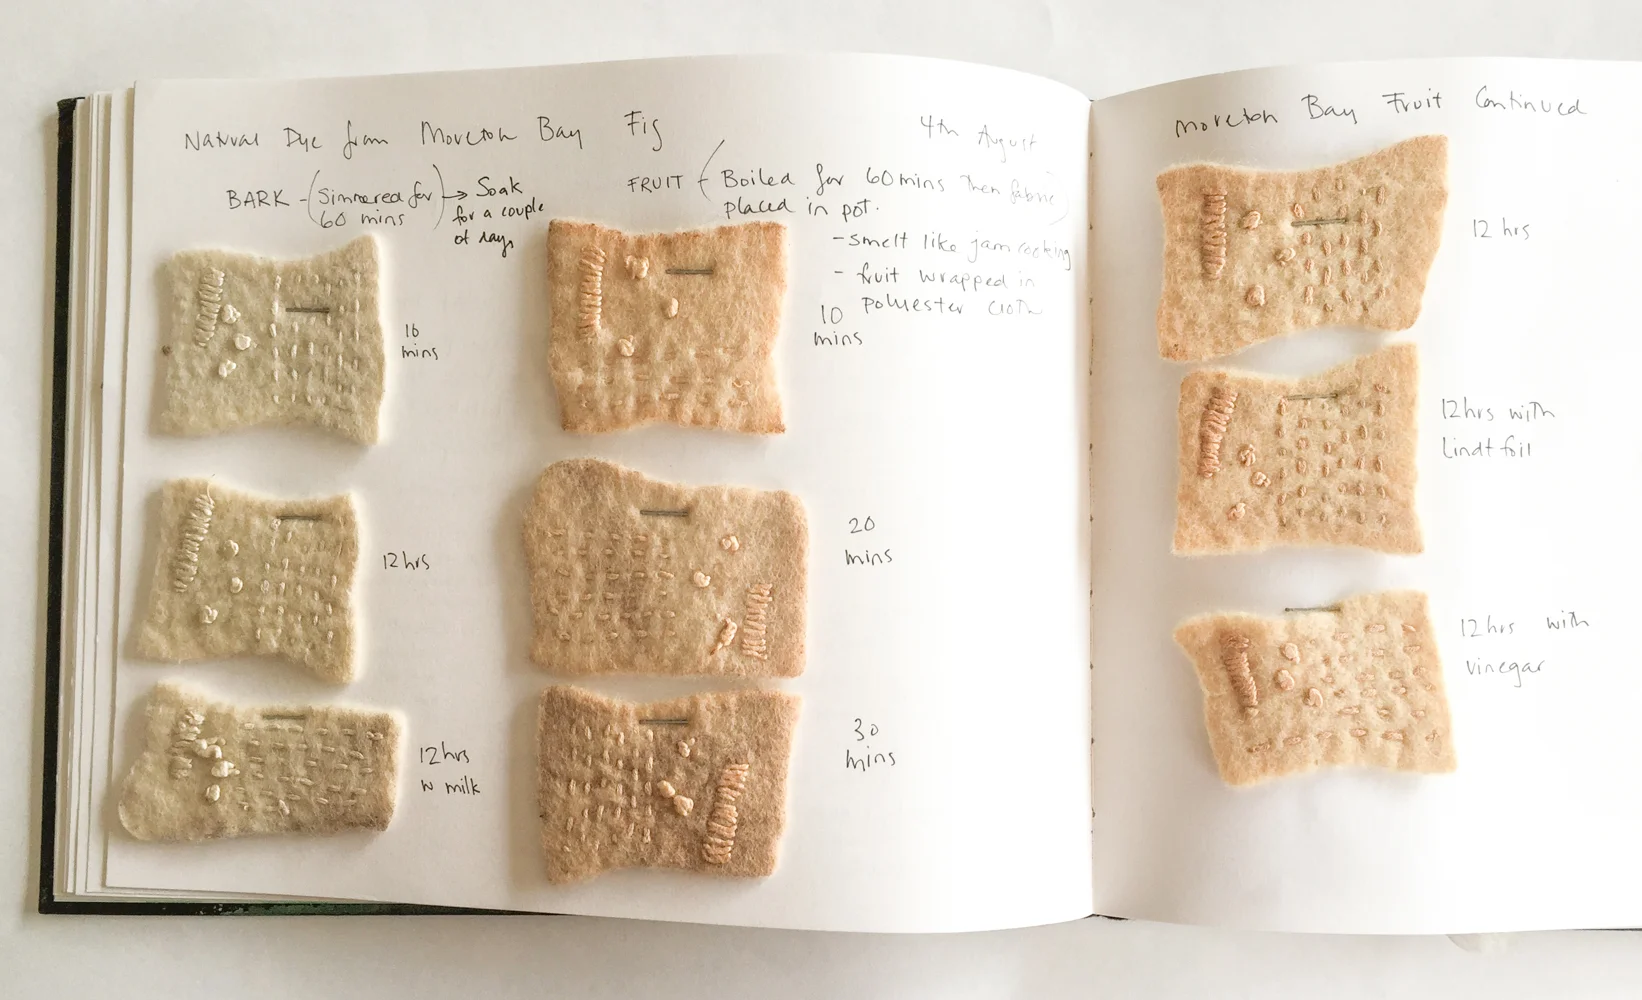 Natural Dye from Moreton Bay Fig
4th August
BARK - (Simmered for 60 mins) → Soak
for a couple
of days
FRUIT (Boiled for 60 mins then fabric)
placed in pot.
- smelt like jam cooking
- fruit wrapped in
polyester cloth
10
mins
12 hrs
12 hrs
w milk
10
mins
20
mins
30
mins
Moreton Bay Fruit Continued
12 hrs
12 hrs with
Lindt foil
12 hrs with
vinegar